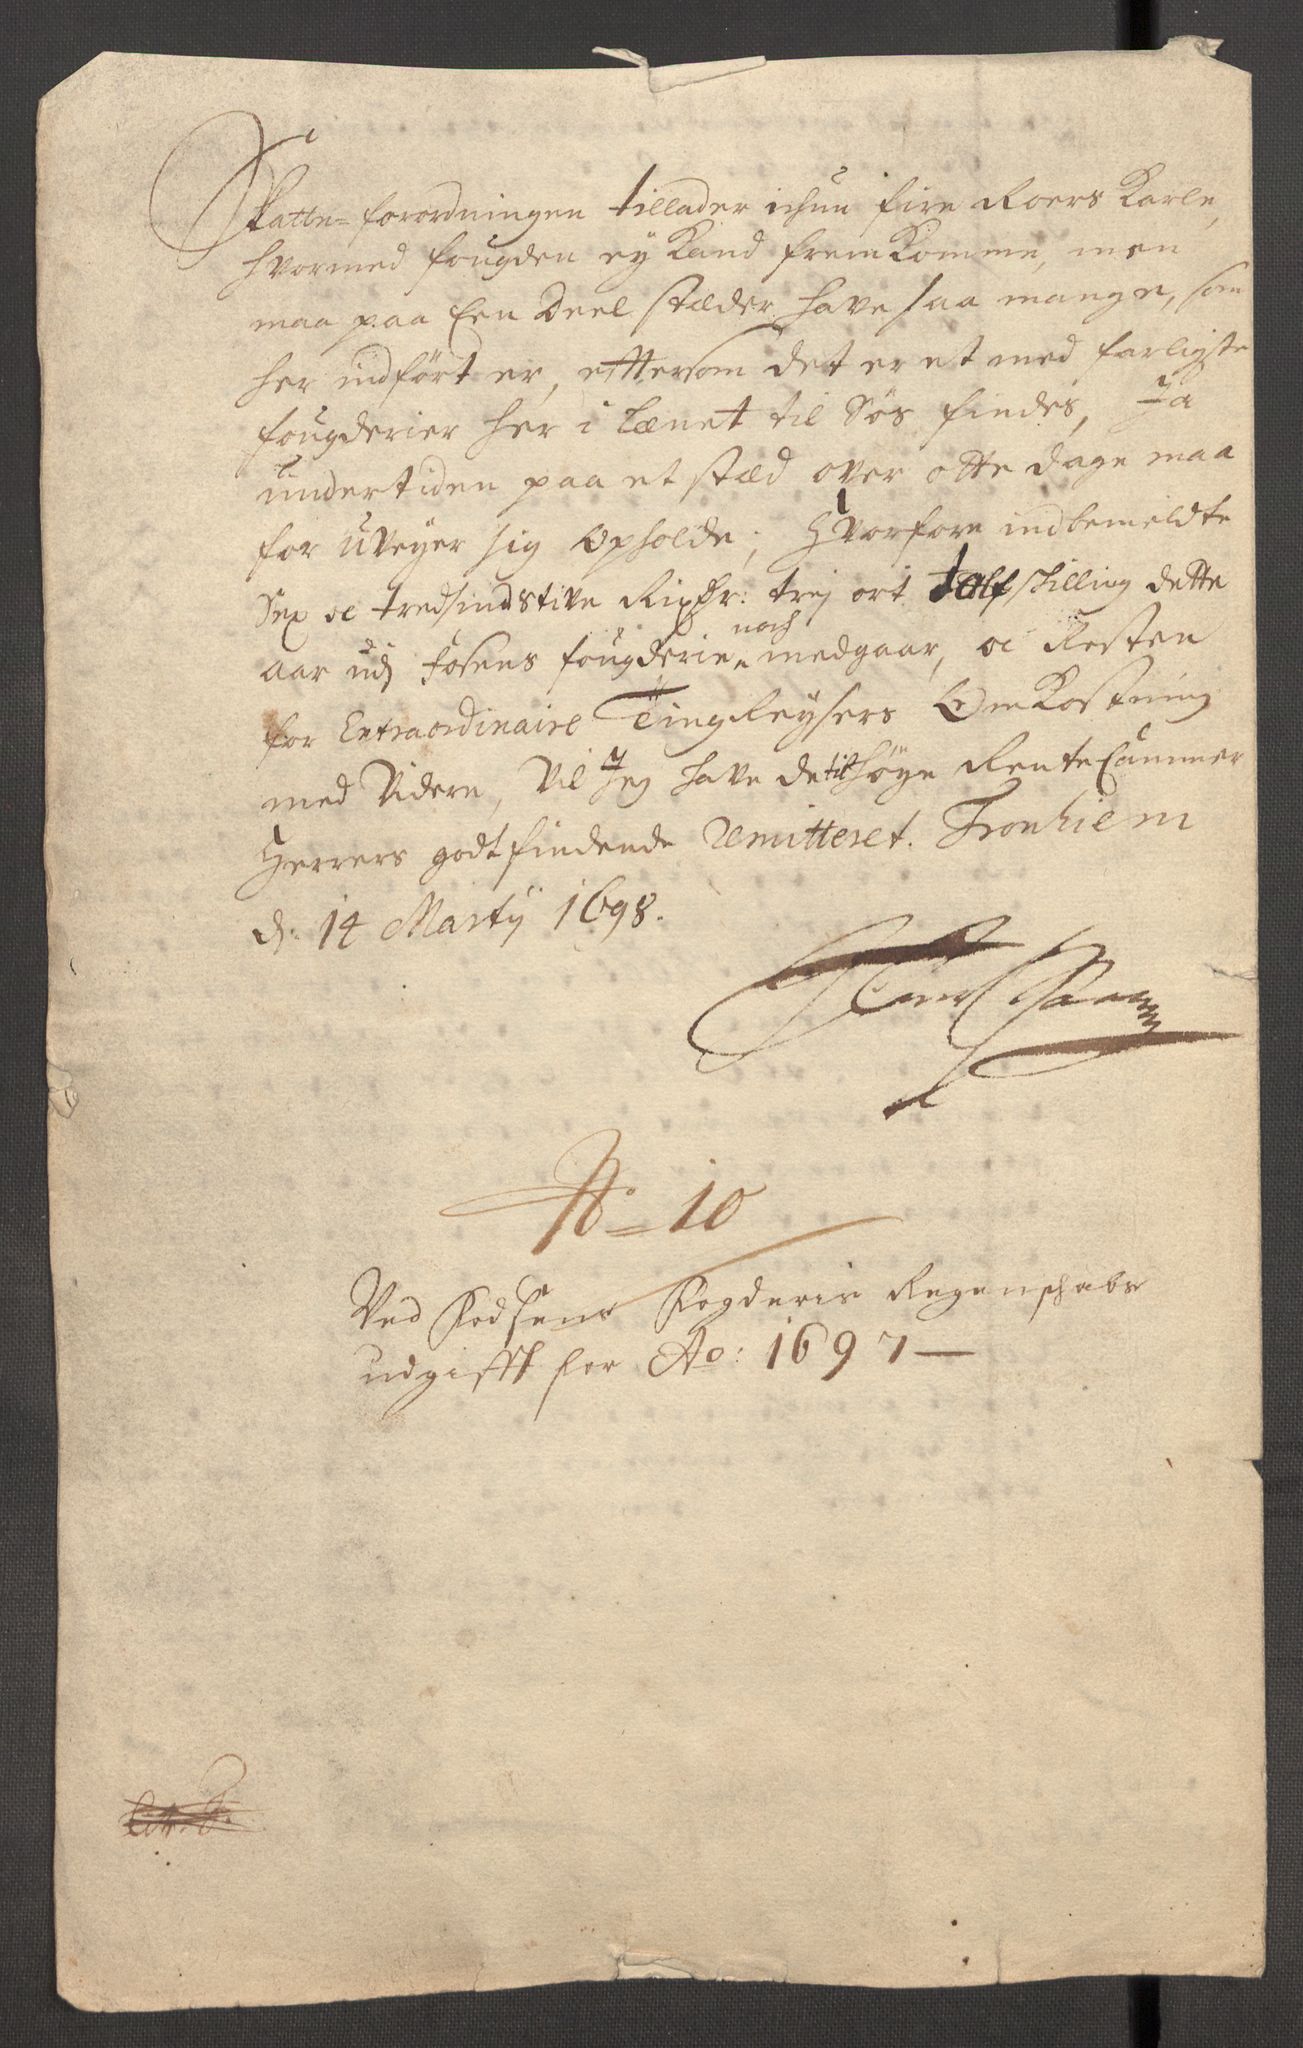 Skatte-forordningen tillader ichun fire Roers Karle,
hvormed fougden ey Kand frem Komme, men
maa paa Een Deel stæder have saa mange, som
her indført er, efftersom det er et med farligste
fougderier her i Lænet til Søs findes, Ja
undertiden paa et stæd over otte dage maa
for uveyer sig Opholde; Hvorfore indbemeldte
Sex oc tredsindstive Rixdr: trej ort tolf skilling dette
aar udj Fosens fougderie noch medgaar, oc Resten
for Extraordinaire Ting Reysers Om Kostning
med Videre, Vil Jeg have det til høye Rente Cammer
Herrers godtfindende Remitteret. Tronhiem
d: 14 Marty 1698.
No = 10
Ved Fodsens Fogderis Regenschabs
udgifft for Ao: 1697 —
Litr. F.